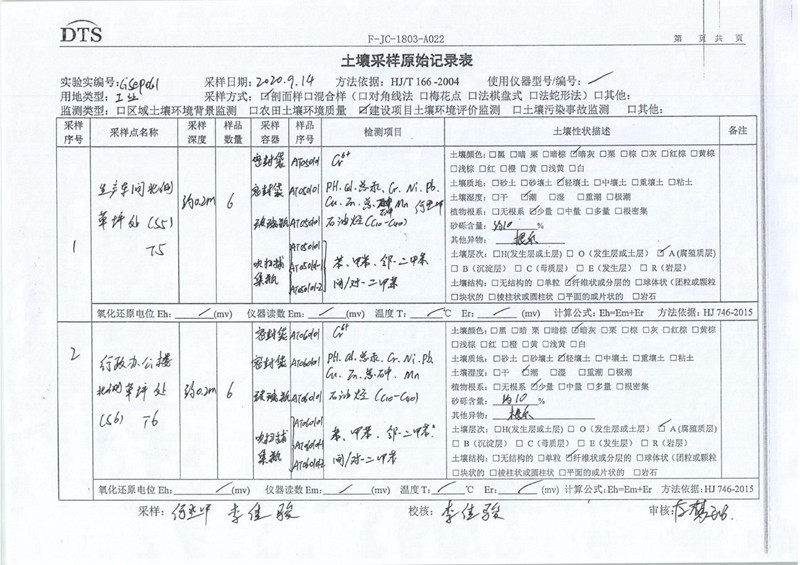 DTS
F-JC-1803-A022
第 页 共 页
土壤采样原始记录表
实验室编号: 采样日期:2020.9.14 方法依据: HJ/T 166 -2004 使用仪器型号/编号:
用地类型:工业 采样方式:☑剖面样□混合样(□对角线法 □梅花点 □法棋盘式 □法蛇形法)□其他:
监测类型:□区域土壤环境背景监测 □农田土壤环境质量 ☑建设项目土壤环境评价监测 □土壤污染事故监测 □其他:
采样序号 采样点名称 采样深度 样品数量 采样容器 样品序号 检测项目 土壤性状描述 备注
1
生产车间北侧
草坪处 (S5)
T5
约0.2m
6
密封袋 AT050101 Cr6+
密封袋 AT050101 PH. Cd. 总汞. Cr. Ni. Pb.
Cu. Zn. 总砷 Mn
玻璃瓶 AT050101 石油烃(C10-C40)
吹扫捕集瓶 AT050101
苯、甲苯、邻-二甲苯
间/对-二甲苯
土壤颜色:□黑 □暗 栗 □暗棕 ☑暗灰 □栗 □棕 □灰 □红棕 □黄棕
□浅棕 □红 □橙 □黄 □浅黄 □白
土壤质地:□砂土 □砂壤土 ☑轻壤土 □中壤土 □重壤土 □粘土
土壤湿度:□干 ☑潮 □湿 □重潮 □极潮
植物根系:□无根系 ☑少量 □中量 □多量 □根密集
砂砾含量: 约10 %
其他异物: 根系
土壤层次:□H(发生层或土层) □O(发生层或土层) ☑A(腐殖质层)
□B(沉淀层) □C(母质层) □E(发生层) □R(岩层)
土壤结构:□无结构的 □单粒 ☑纤维状或分层的 □球体状(团粒或颗粒
□块状的 □棱柱状或圆柱状 □平面的或片状的 □岩石
氧化还原电位 Eh: (mv) 仪器读数 Em: (mv) 温度 T: ℃ Er: (mv) 计算公式: Eh=Em+Er 方法依据: HJ 746-2015
2
行政办公楼
北侧草坪处
(S6) T6
约0.2m
6
密封袋 AT060101 Cr6+
密封袋 AT060101 PH. Cd. 总汞. Cr. Ni. Pb
Cu. Zn. 总砷. Mn
玻璃瓶 AT060101 石油烃(C10-C40)
吹扫捕集瓶 AT060101
苯、甲苯、邻-二甲苯、
间/对-二甲苯
土壤颜色:□黑 □暗 栗 □暗棕 ☑暗灰 □栗 □棕 □灰 □红棕 □黄棕
□浅棕 □红 □橙 □黄 □浅黄 □白
土壤质地:□砂土 □砂壤土 ☑轻壤土 □中壤土 □重壤土 □粘土
土壤湿度:□干 ☑潮 □湿 □重潮 □极潮
植物根系:□无根系 ☑少量 □中量 □多量 □根密集
砂砾含量: 约10 %
其他异物: 根系
土壤层次:□H(发生层或土层) □O(发生层或土层) ☑A(腐殖质层)
□B(沉淀层) □C(母质层) □E(发生层) □R(岩层)
土壤结构:□无结构的 □单粒 ☑纤维状或分层的 □球体状(团粒或颗粒
□块状的 □棱柱状或圆柱状 □平面的或片状的 □岩石
氧化还原电位 Eh: (mv) 仪器读数 Em: (mv) 温度 T: ℃ Er: (mv) 计算公式: Eh=Em+Er 方法依据: HJ 746-2015
采样: 李佳骏 校核: 李佳骏 审核: